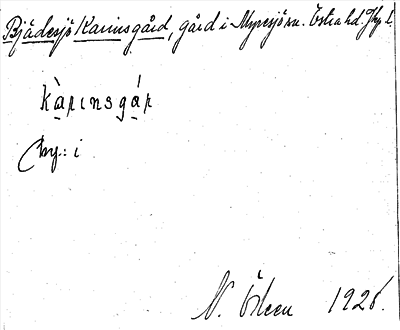 Bjädesjö Karinsgård, gård i Myresjö sn. Östra hd. Jkp l.
kàrınsgár
(by.: i
N. Ödeen 1926.